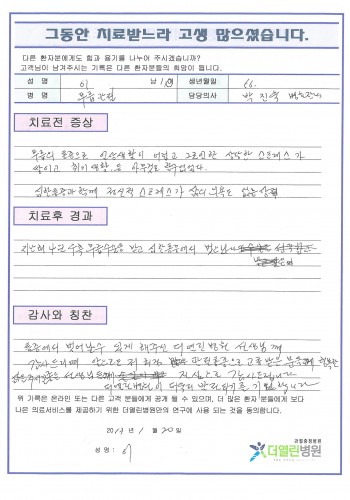 그동안 치료받느라 고생 많으셨습니다.
다른 환자분에게도 힘과 용기를 나누어 주시겠습니까?
고객님이 남겨주시는 기록은 다른 환자분들의 희망이 됩니다.
성 명 이 남/여 생년월일 66.
병 명 무릎관절 담당의사 박진욱 병원장님
치료전 증상
무릎의 통증으로 일상생활이 어렵고 그로인한 상당한 스트레스가
쌓이고 취미생활은 아무것도 할수없었다.
심한통증과 함께 정신적 스트레스가 삶의 의욕도 없는 상황
치료후 경과
지난해 수술 받고 심한통증에서 벗어나
감사와 칭찬
통증에서 벗어날수 있게 해주신 더열린병원 선생님께
감사드리며 앞으로도 저처럼 관절통증으로 고통받는 분들께
선생님들께 진심으로 감사드립니다
더열린병원이 더욱더 발전되기를 기원합니다
위 기록은 온라인 또는 다른 고객 분들에게 공개 될 수 있으며, 더 많은 환자 분들에게 보다
나은 의료서비스를 제공하기 위한 더열린병원만의 연구에 사용 되는 것을 동의합니다.
2019년 1월 20일
성 명 : 이
관절중점병원
더열린병원